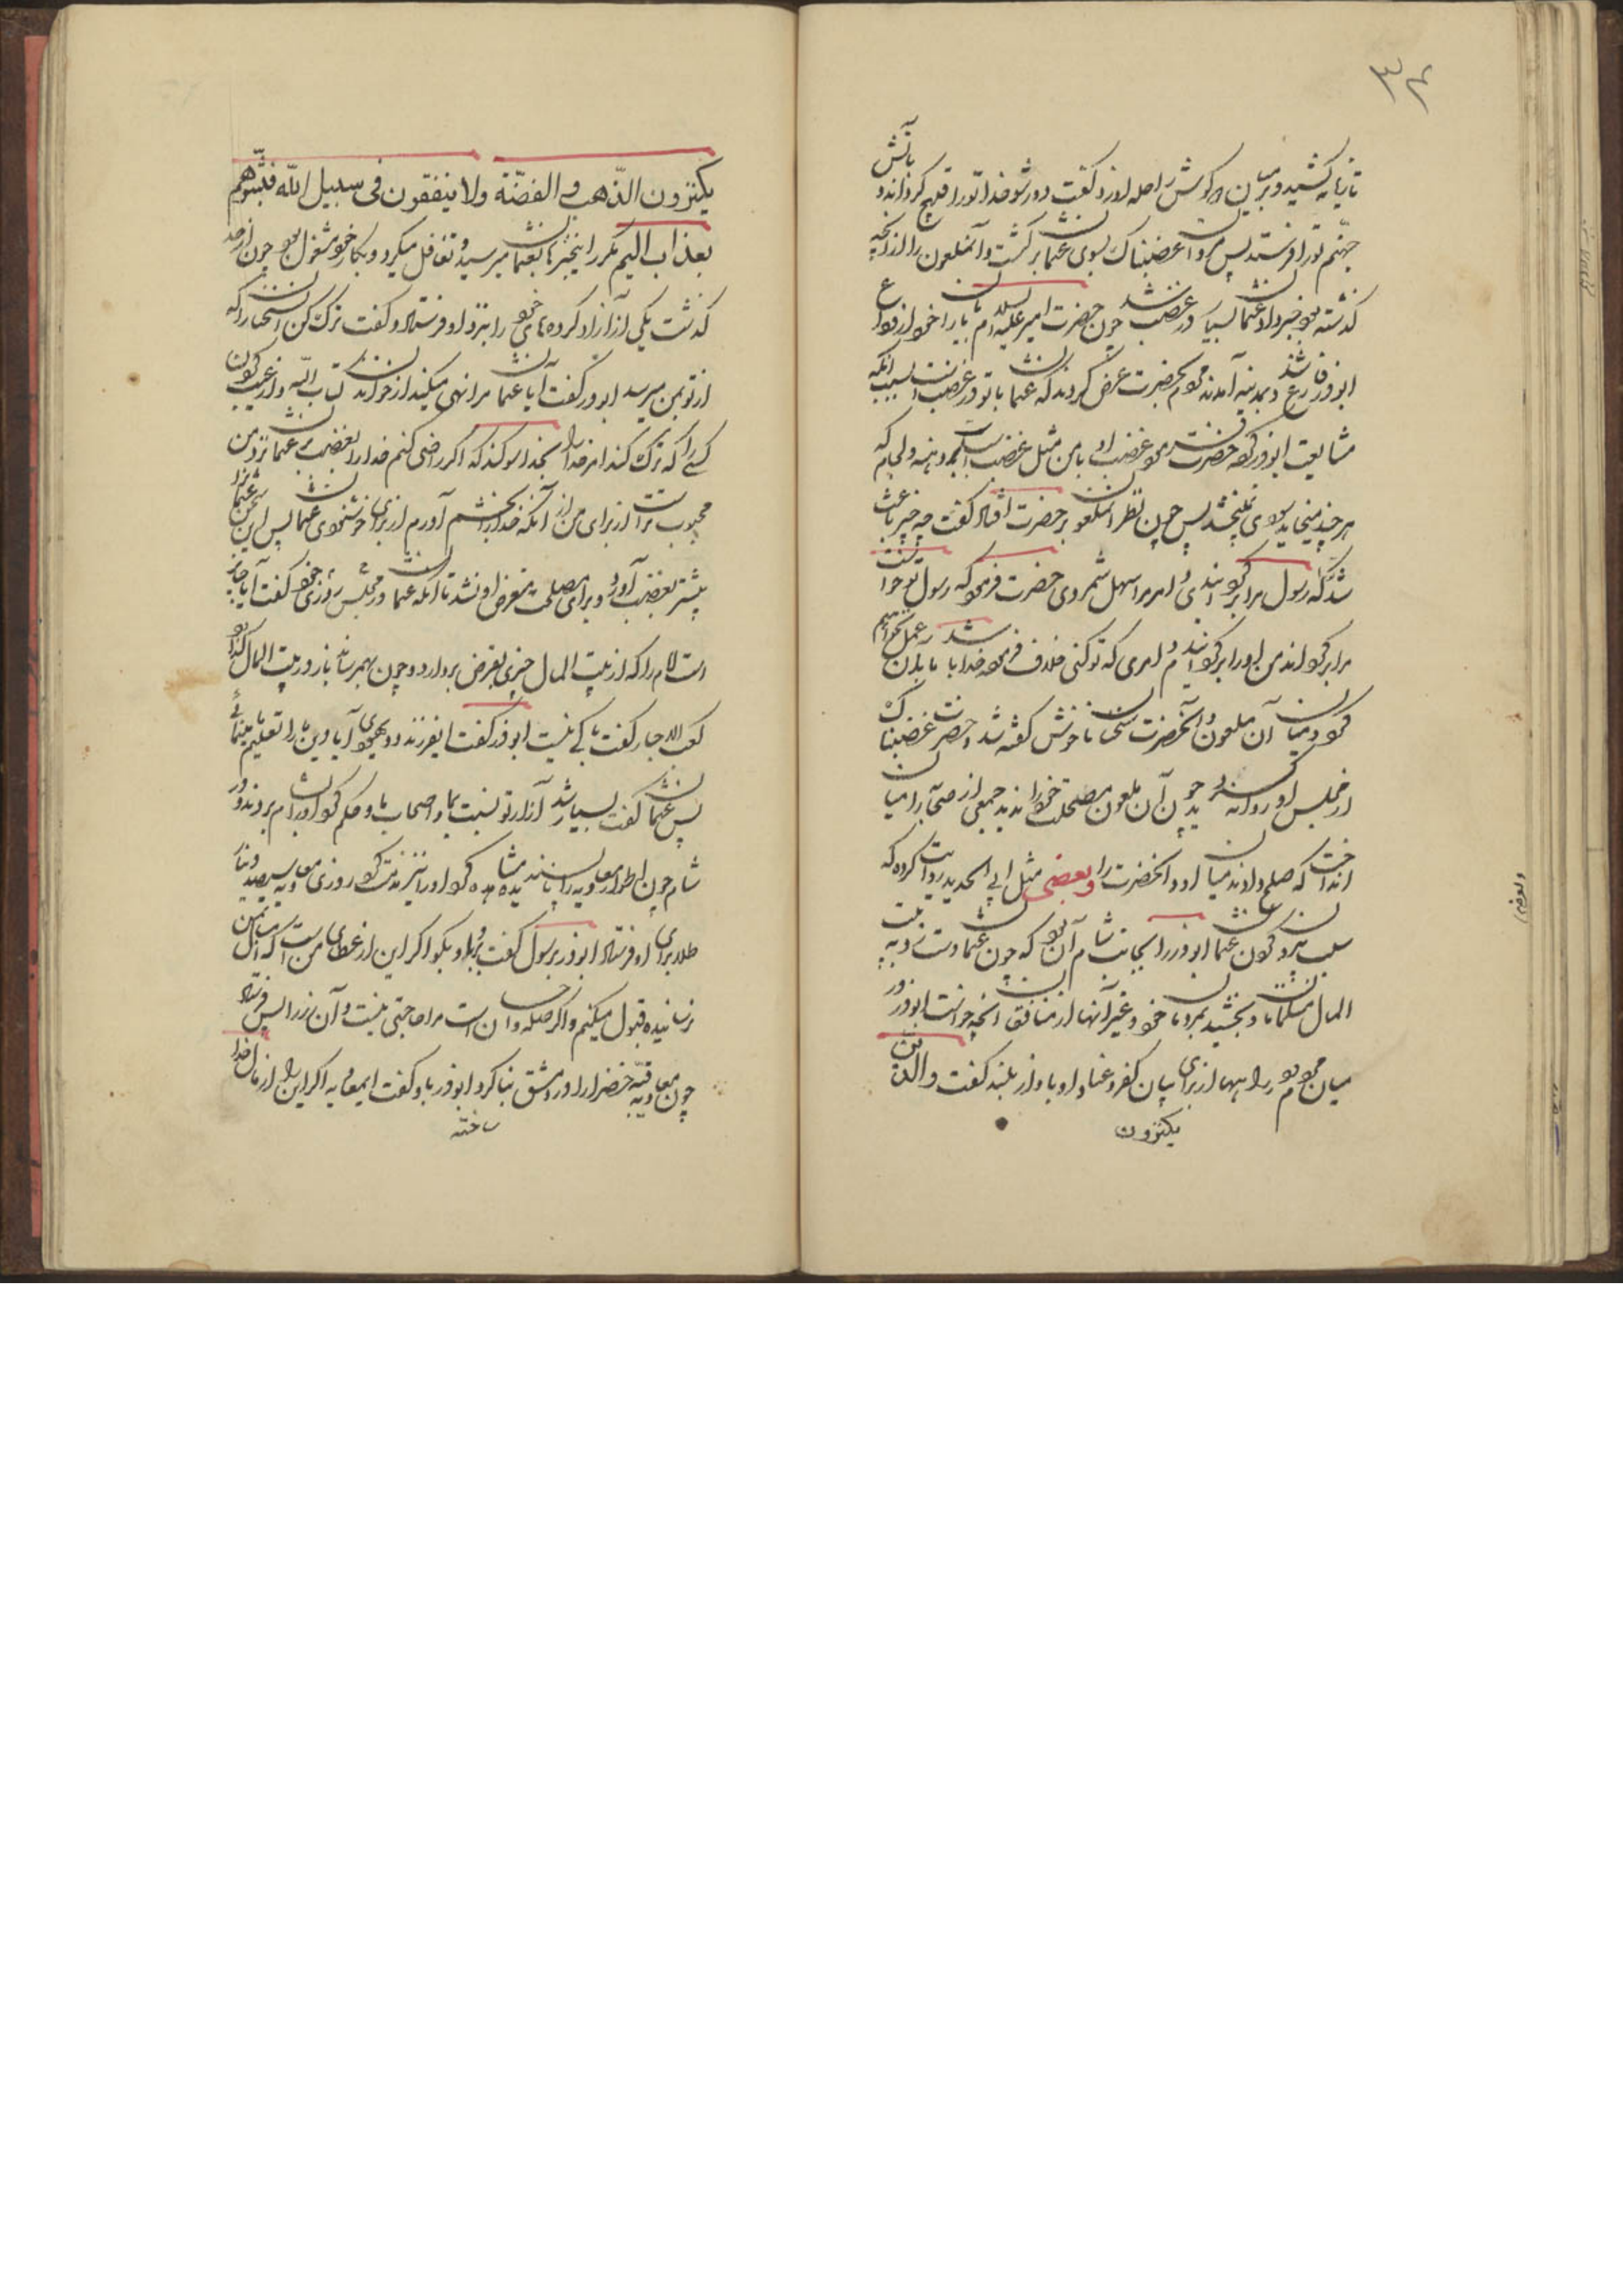 ۳۲
تازیانه کشید و بر میان دو کوش راحله او زد و کفت دور شو خدا تو را قبیح کرداند و بآتش
جهنم تو را فرستد پس مروان غضبناک بسوی عثمان برکشت و آنملعون را از آنچه
کذشته بود خبر داد و عثمان بسیار در غضب شد چون حضرت امیر علیه السلام با یاران خود از وداع
ابوذر رض فارغ شدند و بمدینه آمدند مردم بحضرت عرض کردند که عثمان با تو در غضب است بسبب آنکه
مشایعت ابوذر کرده حضرت فرمود غضب او با من مثل غضب اسب است بر دهنه و لجام که
هر چند میخاید سودی نمیبخشد پس چون نظر آنملعون بر حضرت افتاد کفت چه چیز باعث
شد که رسول مرا برکردانیدی و امر مرا سهل شمردی حضرت فرمود که رسول تو خواست
مرا برکرداند من او را برکردانیدم و امری که تو کنی خلاف فرموده خدا باشد ما بآن عمل نخواهیم
کرد و میان آن ملعون و آنحضرت سخنان ناخوش کفته شد و حضرت غضبناک
از مجلس او روانه کردید چون آن ملعون مصلحت خود را ندید جمعی از صحابه را میان
انداخت که صلح دادند میان او و آنحضرت را و بعضی مثل ابن ابی الحدید روایت کرده که
سبب بیرون کردن عثمان ابوذر را بجانب شام آن بود که چون عثمان دست در بیت
المال مسلمانان دو بخشید بمروان و غیر آنها از منافقان آنچه خواست ابوذر در
میان مردم و راهها از برای بیان کفر و عناد او باواز بلند کفت والذین
یکنزون
یکنزون الذّهب و الفضّة ولا ینفقون فی سبیل الله فبشّرهم
بعذاب الیم مکرر اینخبرها بعثمان میرسید و تغافل میکرد و بکار خود مشغول بود چون از حد
کذشت یکی از آزاد کرده های خود را بنزد او فرستاد و کفت ترک کن این سخنان را که
از تو بمن میرسد ابوذر کفت آیا عثمان مرا نهی میکند از خواندن کتاب الله و از عیب کردن
کسی را که ترک کند امر خدا را بخدا سوکند که اکر راضی کنم خدا را بغضب عثمان نزد من
محبوب تر است از برای من از آنکه خدا را بخشم آورم از برای خوشنودی عثمان پس این سخن عثمان را
بیشتر بغضب آورد و برای مصلحت متعرض او نشد تا آنکه عثمان در مجلس روزی خود کفت آیا جایز
است امام را که از بیت المال چیزی بقرض بردارد و چون بهم رساند باز در بیت المال کذارد
کعب الاحبار کفت باکی نیست ابوذر کفت ایفرزند دو یهودی آیا دین ما را تعلیم ما مینمائی
پس عثمان کفت بسیار شد آزار تو نسبت بما و اصحاب ما و حکم کرد او را بشام بردند و در
شام چون اطوار معاویه را ناپسندیده مشاهده کرد او را نیز مذمت کرد روزی معاویه سیصد دینار
طلا برای او فرستاد ابوذر برسول کفت برو باو بکو اکر این از عطای من است که امسال بمن
نرسانیده قبول میکنم و اکر صله و احسان است مرا حاجتی نیست و آن زر را پس فرستاد
چون معاویه قبّه خضرا را در دمشق بنا کرد ابوذر باو کفت ایمعاویه اکر این را از مال خدا
ساخته